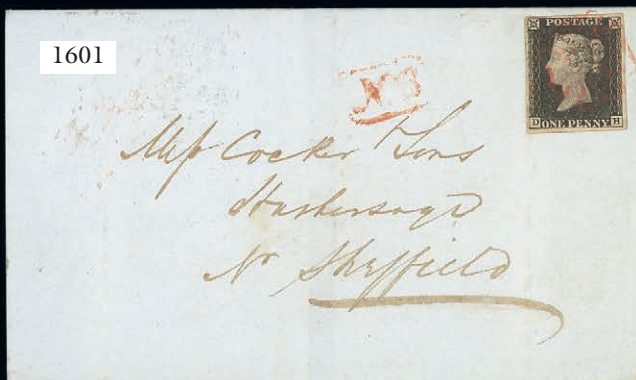 1601
POSTAGE
D ONE PENNY H
No 3
Messrs Cocker & Sons
Hathersage
Nr Sheffield